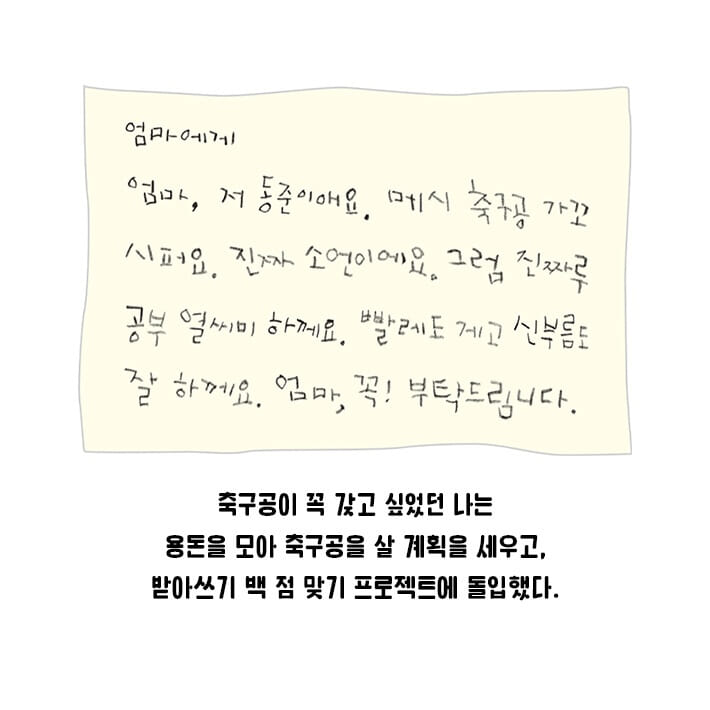 엄마에게
엄마, 저 동준이애요. 메시 축구공 가꼬
시퍼요. 진짜 소언이에요. 그럼 진짜루
공부 열씨미 하께요. 빨레도 게고 신부름도
잘 하께요. 엄마, 꼭! 부탁드림니다.
축구공이 꼭 갖고 싶었던 나는
용돈을 모아 축구공을 살 계획을 세우고,
받아쓰기 백 점 맞기 프로젝트에 돌입했다.